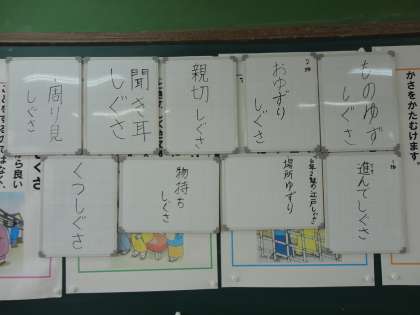 かさをかたむけます。
ものゆず
しぐさ
おゆずり
しぐさ
親切しぐさ
聞き耳
しぐさ
周り見
しぐさ
進んでしぐさ
6年2組の江戸しぐさ
場所ゆずり
物持ち
しぐさ
くつしぐさ
ぐさ